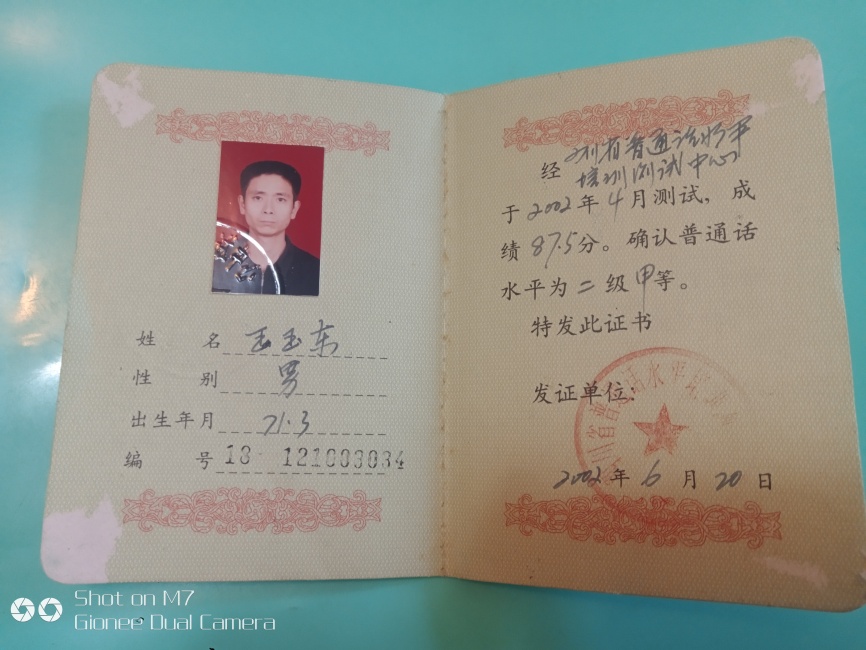 姓 名 王玉东
性 别 男
出生年月 71.3
编 号 13 121003034
经 省普通话水平
培训测试中心
于2002年4月测试，成
绩87.5分。确认普通话
水平为二级甲等。
特发此证书
发证单位：
2002年6月20日
Shot on M7
Gionee Dual Camera